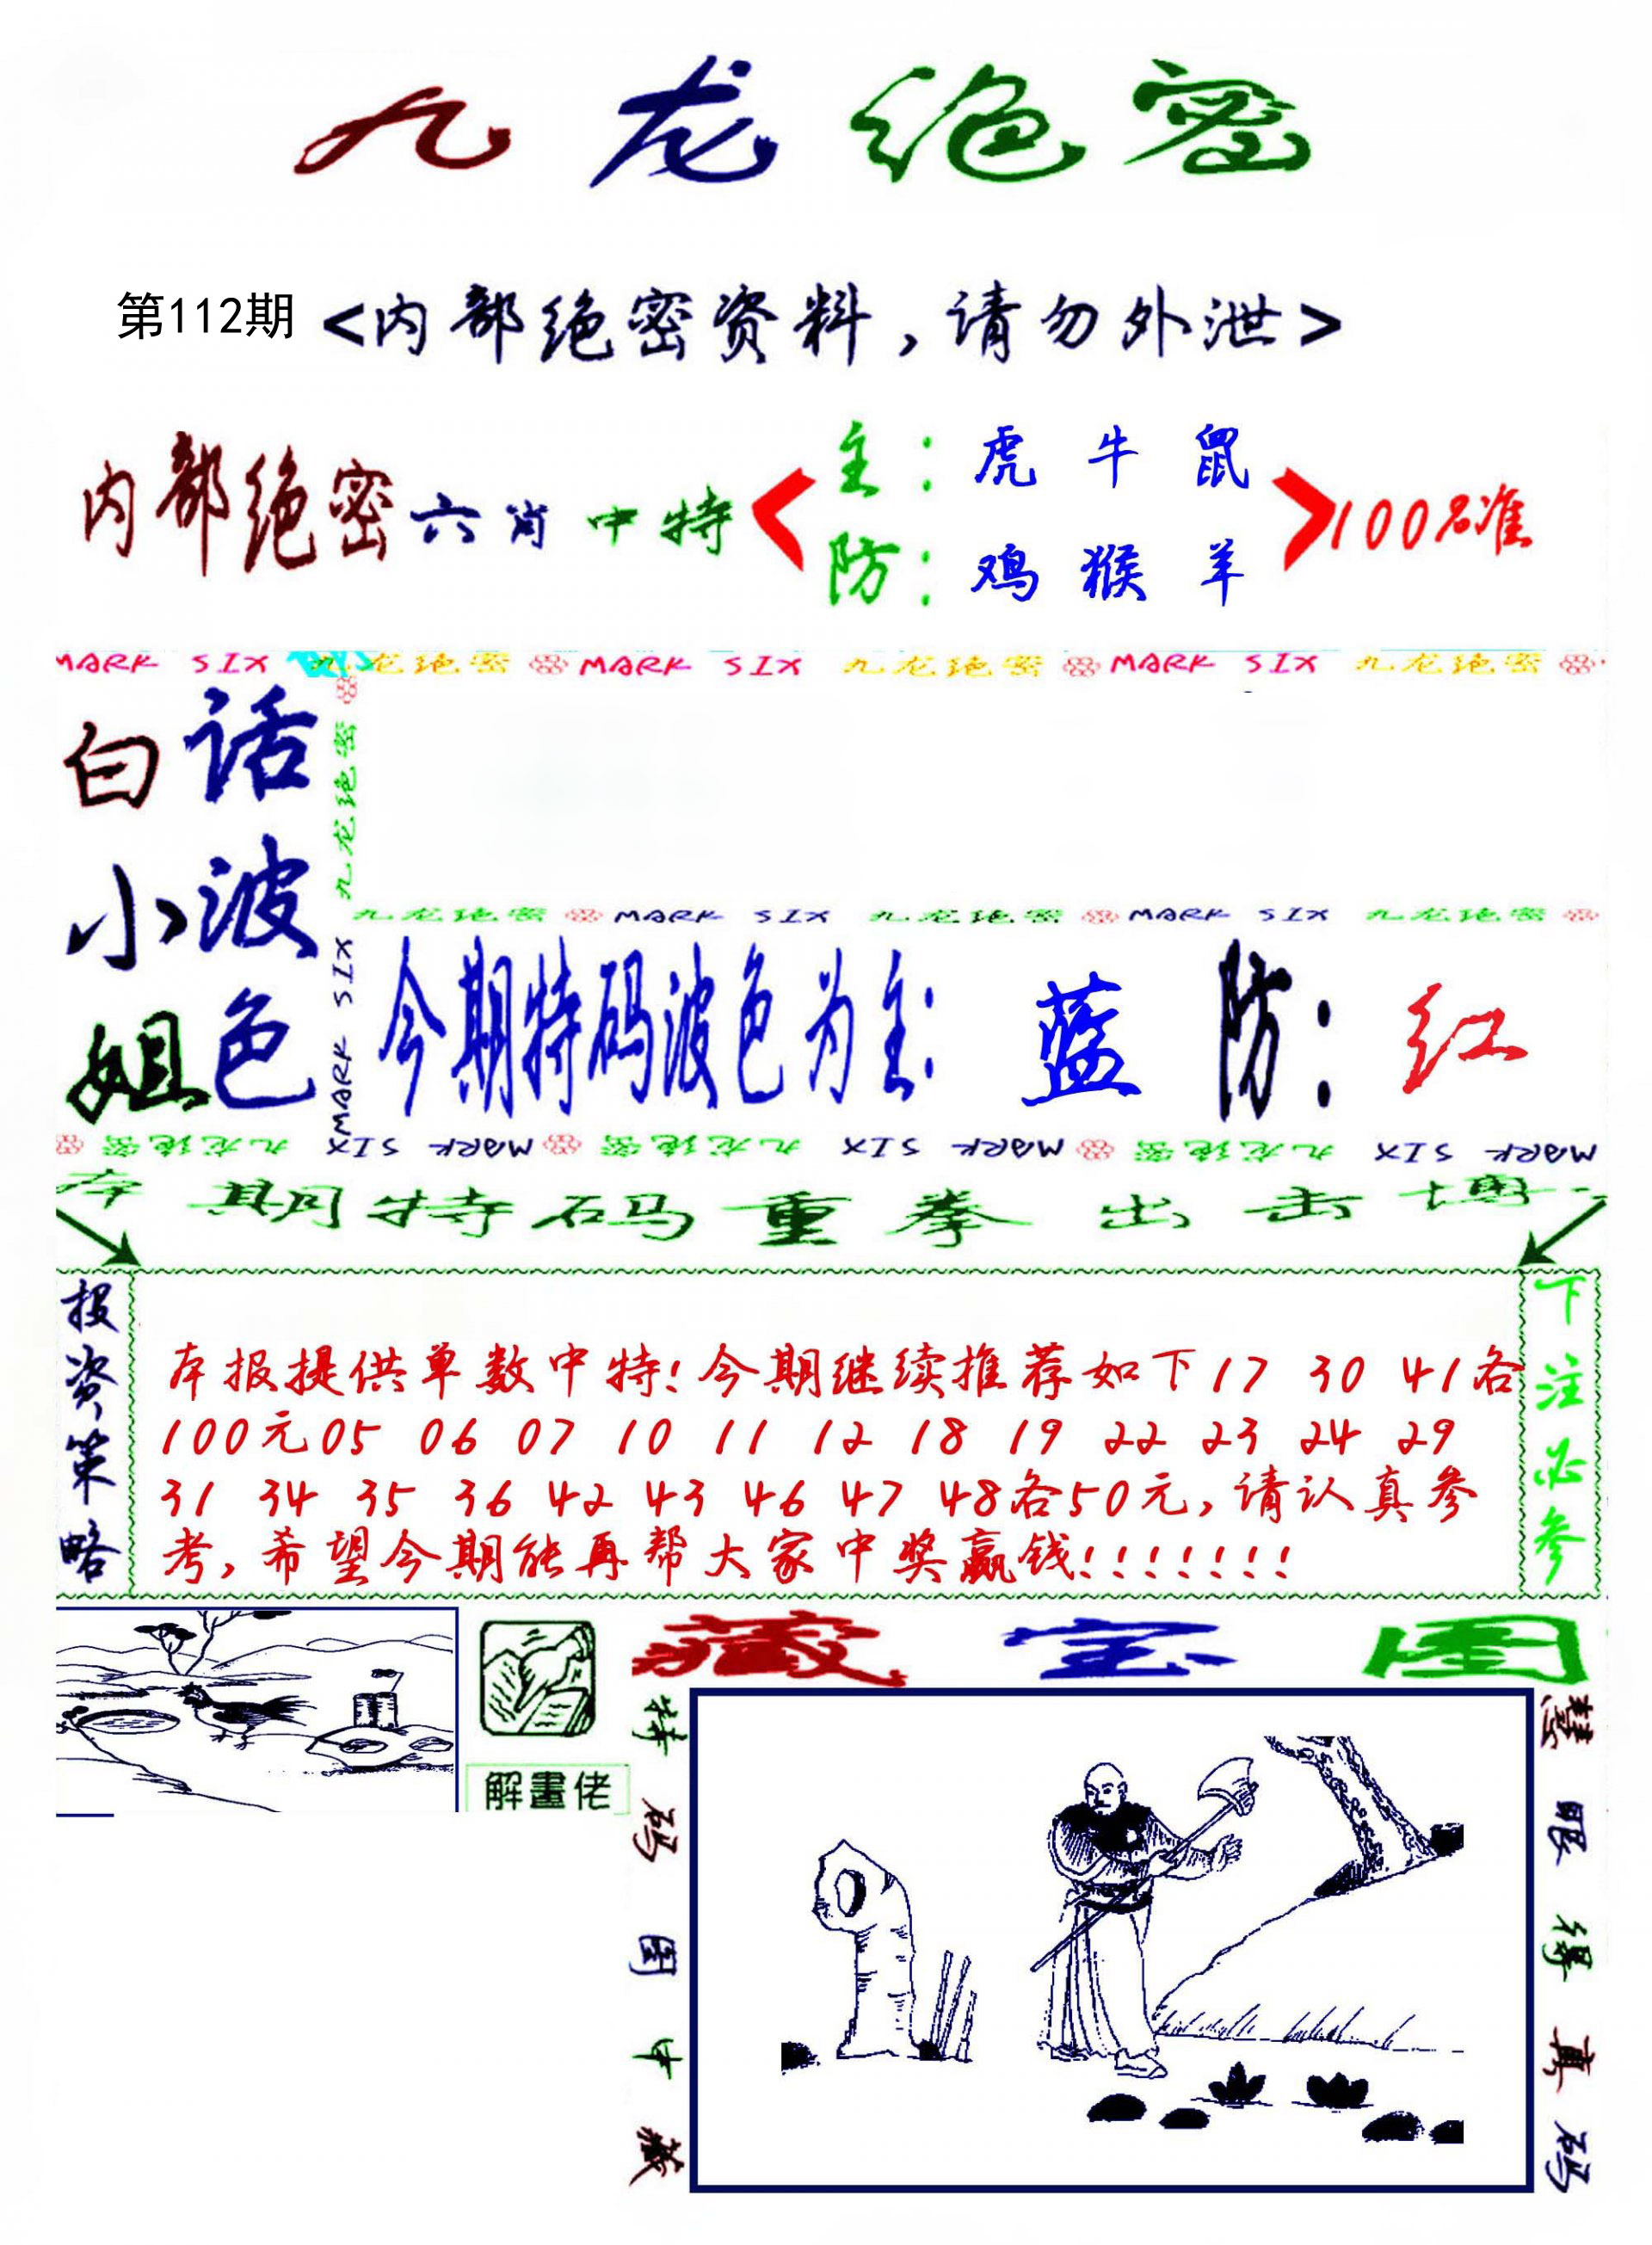 九龙绝密
第112期 <内部绝密资料，请勿外泄>
内部绝密六肖中特
主：虎 牛 鼠
防：鸡 猴 羊
100%准
MARK SIX 九龙绝密 MARK SIX 九龙绝密 MARK SIX 九龙绝密
白小姐
话波色
九龙绝密 MARK SIX
九龙绝密 MARK SIX 九龙绝密 MARK SIX 九龙绝密
今期特码波色为主: 蓝 防: 红
MARK SIX 九龙绝密 MARK SIX 九龙绝密 MARK SIX 九龙绝密
本期特码重拳出击博
投资策略
本报提供单数中特!今期继续推荐如下17 30 41各
100元05 06 07 10 11 12 18 19 22 23 24 29
31 34 35 36 42 43 46 47 48各50元,请认真参
考,希望今期能再帮大家中奖赢钱!!!!!!!
下注必参
解畫佬
藏宝图
特码图中藏
慧眼得真码